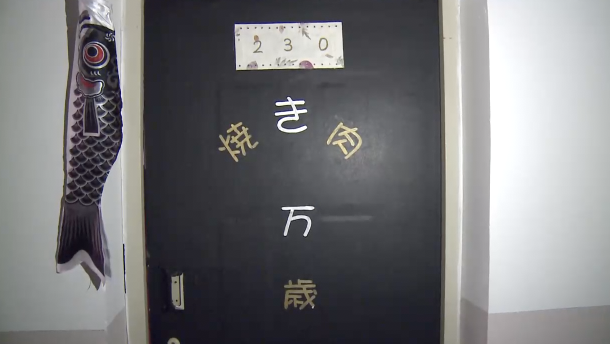 230
焼き肉
万
歳